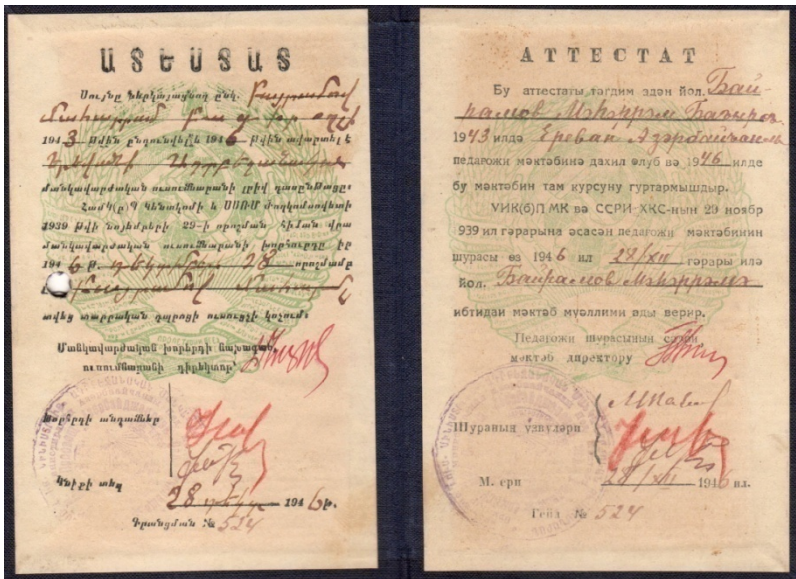 ԱՏԵՍՏԱՏ
Սույնը ներկայացնող ընկ. Բայրամով
Մահարրամ
1943 թվին ընդունվել և 1946 թվին ավարտել է
Յերևանի Ադրբեջանական
մանկավարժական ուսումնարանի լրիվ դասընթացը։
Համկ(բ)Պ Կենտկոմի և ՍՍՌՄ ժողկոմսովետի
1939 թվի նոյեմբերի 29-ի որոշման հիման վրա
մանկավարժական ուսումնարանի խորհուրդը իր
1946 թ. դեկտեմբեր 28 որոշմամբ
Բայրամով
տվեց տարրական դպրոցի ուսուցչի կոչում։
Մանկավարժական խորհրդի նախագահ,
ուսումնարանի դիրեկտոր
Խորհրդի անդամներ
Կնիքի տեղ
28 դեկտ 1946թ.
Գրանցման № 524
АТТЕСТАТ
Бу аттестаты тәгдим эдән йол. Бай-
рамов Мәһәррәм
1943 илдә Ереван Азәрбайҹан
педагожи мәктәбинә дахил олуб вә 1946 илде
бу мәктәбин там курсуну гуртармышдыр.
УИК(б)П МК вә ССРИ ХКС-нын 29 ноябр
939 ил гәрарына әсасән педагожи мәктәбинин
шурасы өз 1946 ил 28/XII гәрары илә
йол. Байрамов Мәһәррәмә
ибтидаи мәктәб муәллими ады верир.
Педагожи шурасынын сәдри
мәктәб директору
Шуранын үзвләри
М. ери 28/XII 1946 ил.
Гейд № 524